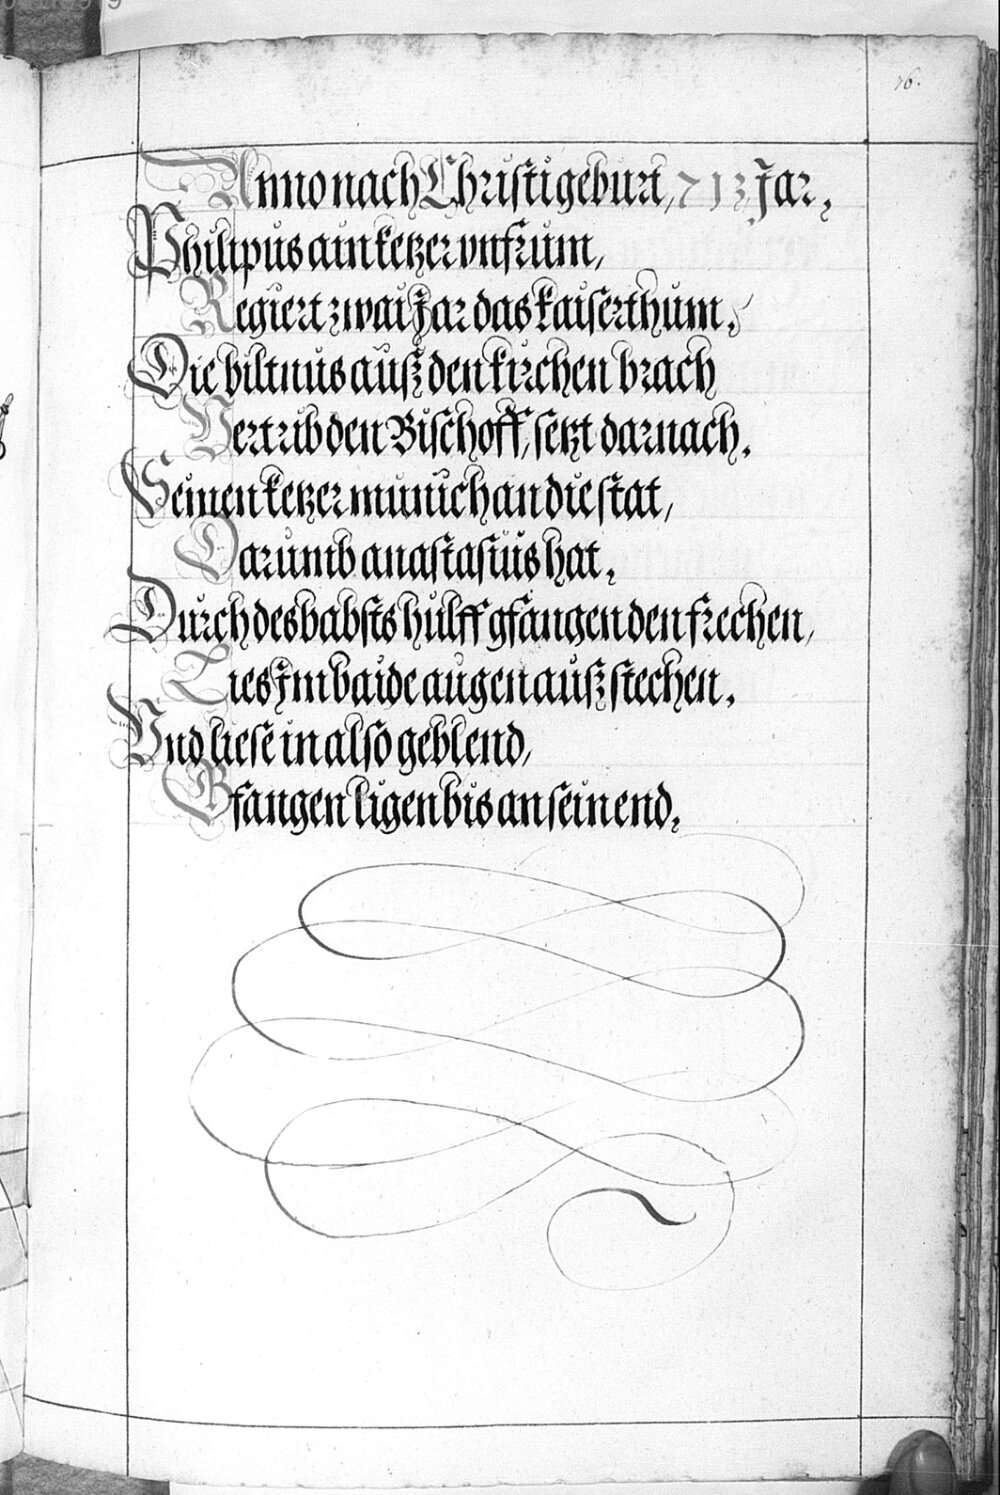 76.
Anno nach Christi geburt, 713 Jar,
Philipus ain ketzer vnfrum,
Regiert zwai Jar das kaiserthum,
Die biltnus auß den kirchen brach
Vertrib den Bischoff, setzt darnach,
Seinen ketzer munich an die stat,
Darumb anastasius hat,
Durch des babsts hulff gfangen den frechen,
Lies Jm baide augen auß stechen,
Vnd liese in also geblend,
Gfangen ligen bis an sein end,